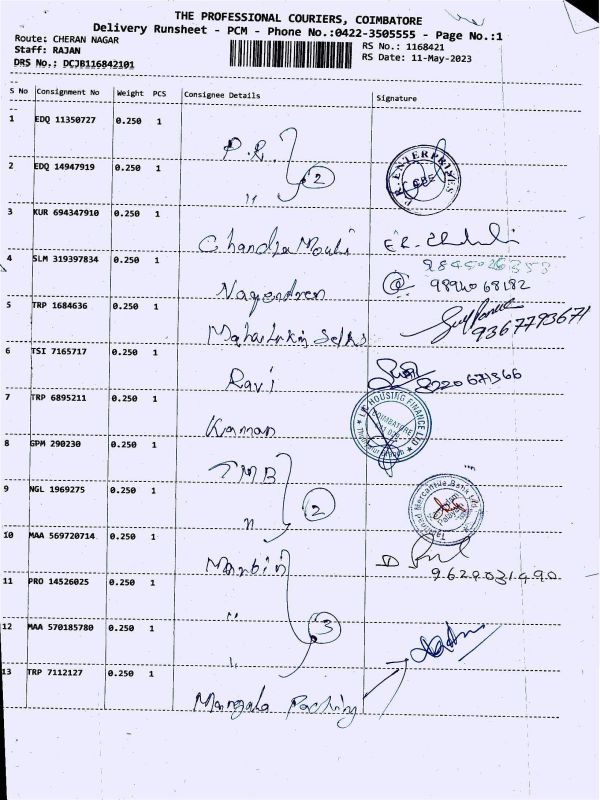 THE PROFESSIONAL COURIERS, COIMBATORE
Delivery Runsheet - PCM - Phone No.:0422-3505555 - Page No.:1
Route: CHERAN NAGAR
RS No.: 1168421
Staff: RAJAN
RS Date: 11-May-2023
DRS No.: DCJB116842101
S No Consignment No Weight PCS Consignee Details Signature
1 EDQ 11350727 0.250 1
P.R.
2 EDQ 14947919 0.250 1
" 2
ENTERPRISES
CBE
3 KUR 694347910 0.250 1
Chandra Mouli
4 SLM 319397834 0.250 1
Nagendren
98940 68182
5 TRP 1684636 0.250 1
9367793671
6 TSI 7165717 0.250 1
Ravi
7 TRP 6895211 0.250 1
Kannan
HOUSING FINANCE LTD
COIMBATORE
8 GPM 290230 0.250 1
TMB
9 NGL 1969275 0.250 1
" 2
Tamilnad Mercantile Bank Ltd
10 MAA 569720714 0.250 1
Marbin
9629031490
11 PRO 14526025 0.250 1
"
12 MAA 570185780 0.250 1
" 3
13 TRP 7112127 0.250 1
Mangala Packing